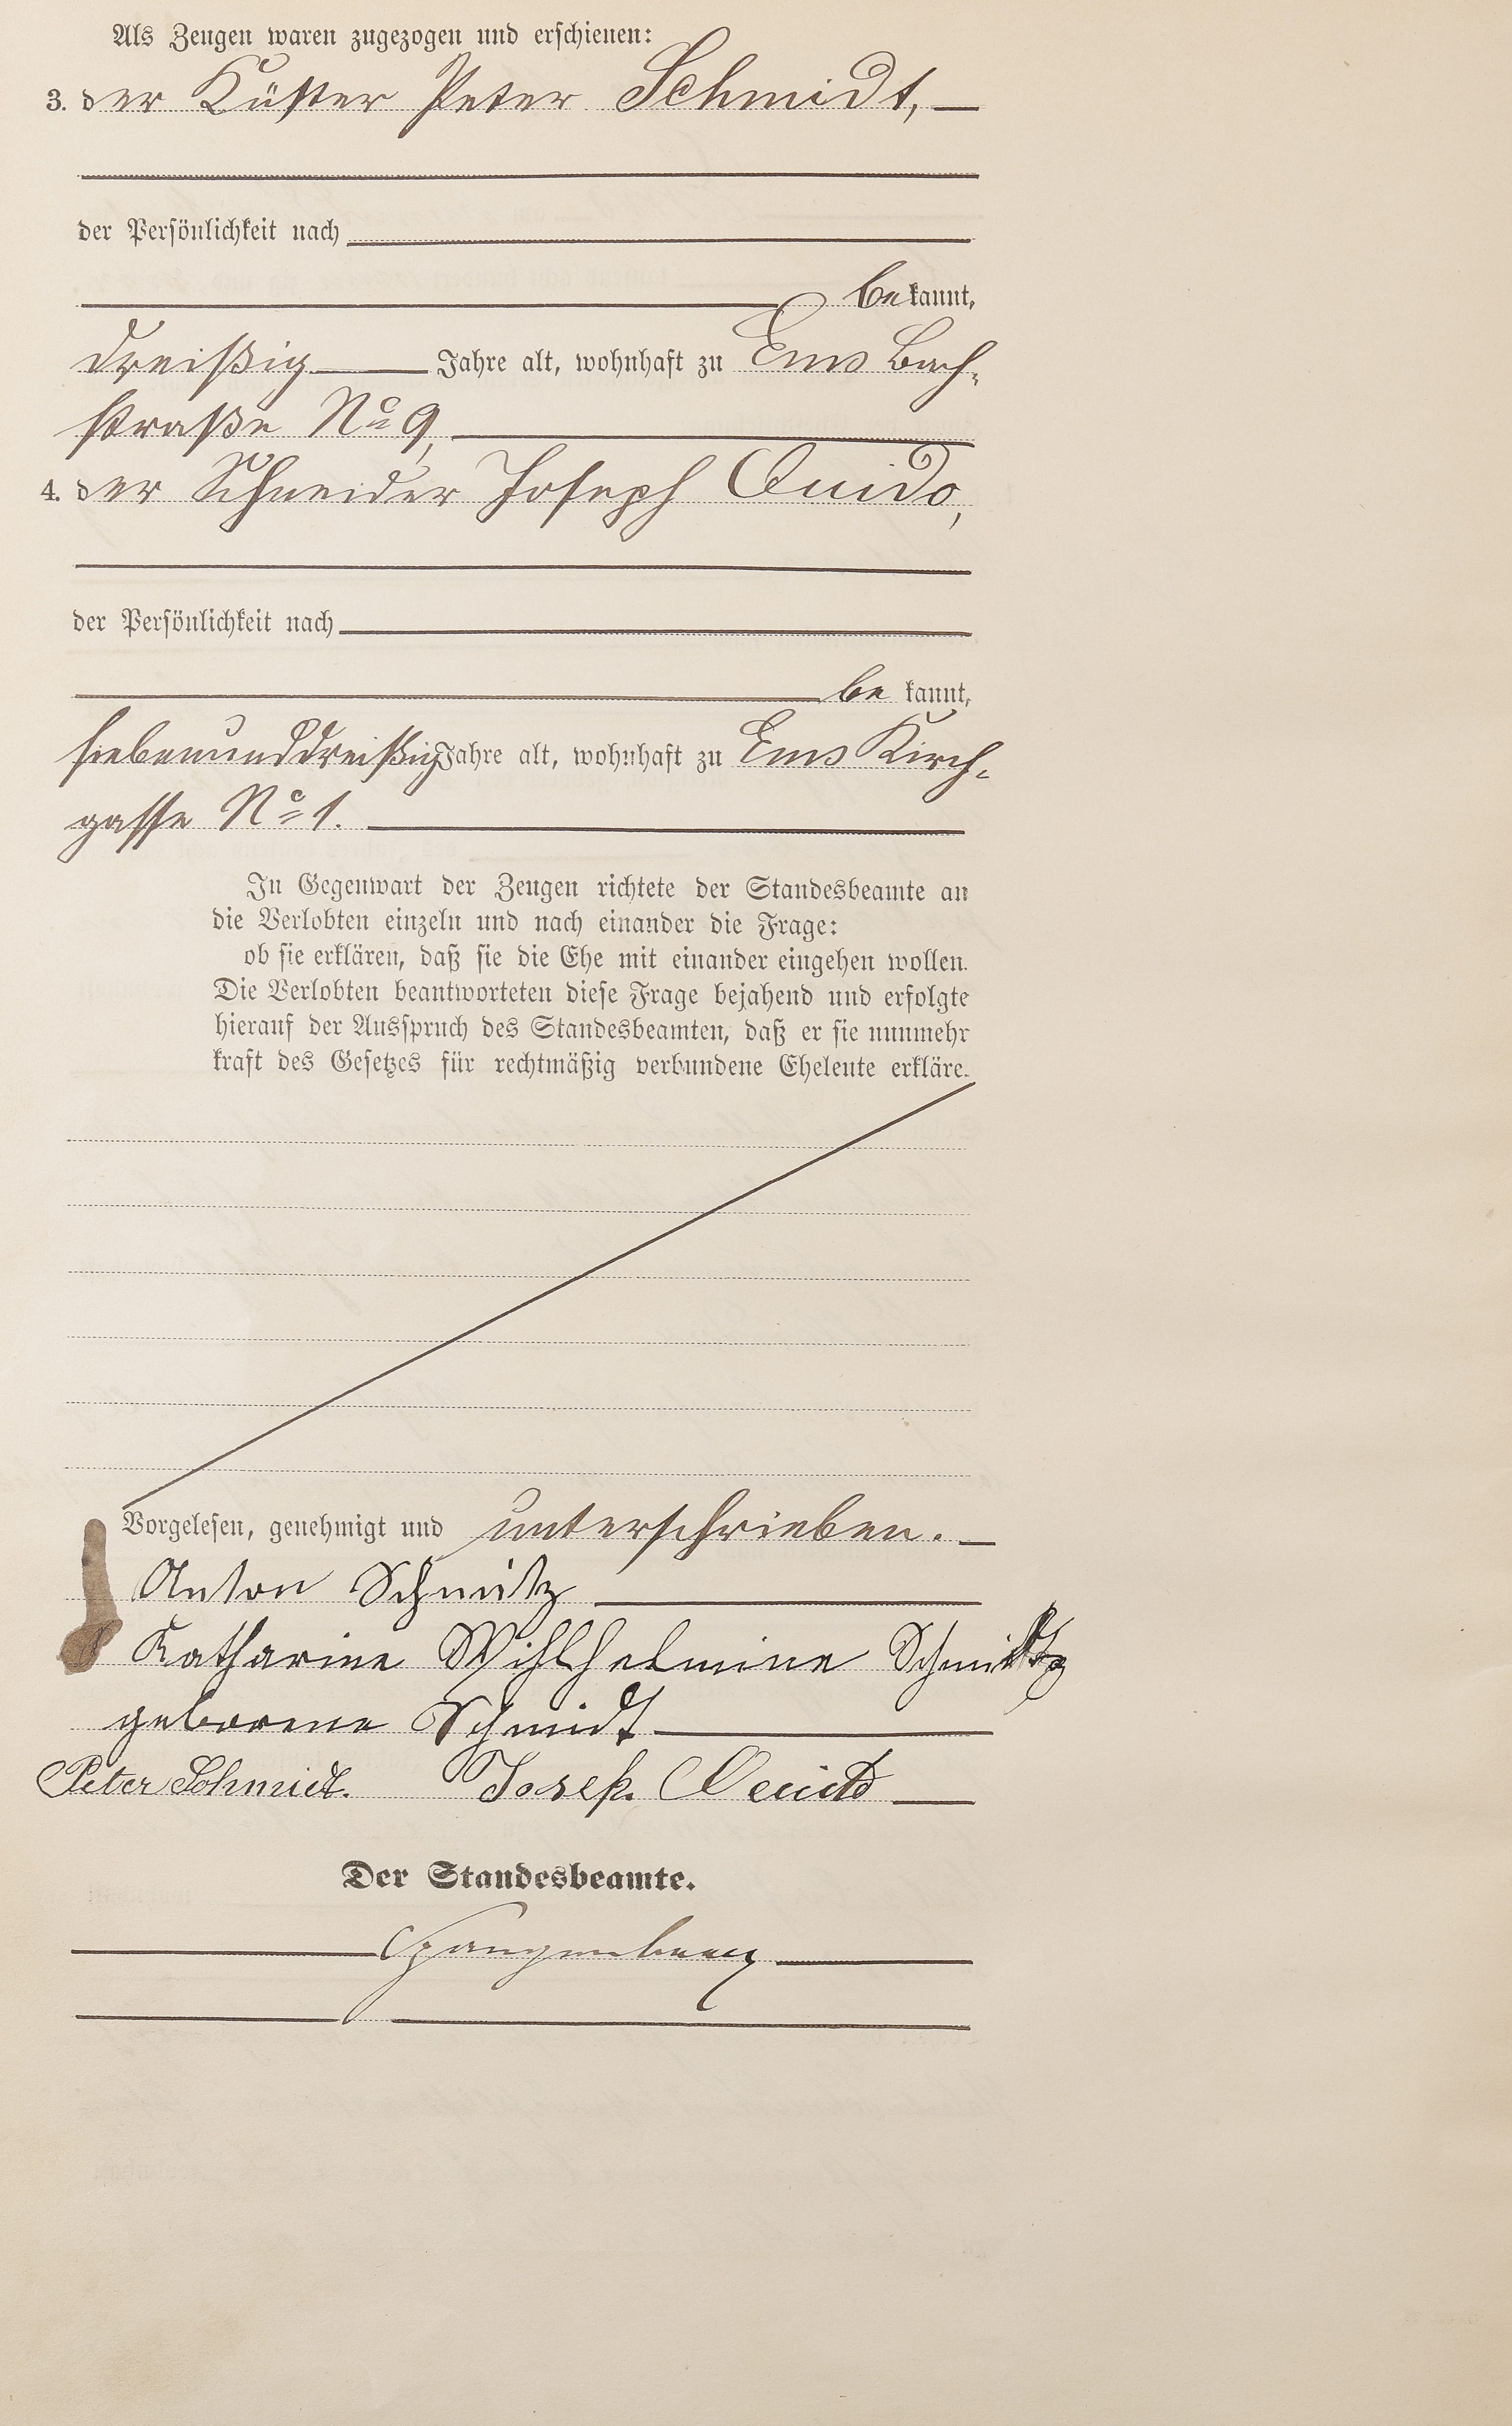 Als Zeugen waren zugezogen und erschienen:
3. der Küster Peter Schmidt,
der Persönlichkeit nach
bekannt,
dreißig Jahre alt, wohnhaft zu Ems Bach-
straße No 9,
4. der Schneider Joseph Quido,
der Persönlichkeit nach
be kannt,
siebenunddreißig Jahre alt, wohnhaft zu Ems Kirch-
gasse No 1.
In Gegenwart der Zeugen richtete der Standesbeamte an
die Verlobten einzeln und nach einander die Frage:
ob sie erklären, daß sie die Ehe mit einander eingehen wollen.
Die Verlobten beantworteten diese Frage bejahend und erfolgte
hierauf der Ausspruch des Standesbeamten, daß er sie nunmehr
kraft des Gesetzes für rechtmäßig verbundene Eheleute erkläre.
Vorgelesen, genehmigt und unterschrieben.
Anton Schmitz
Katharine Wihlhelmine Schmitz
geborene Schmidt
Peter Schmidt. Josep. Quido
Der Standesbeamte.